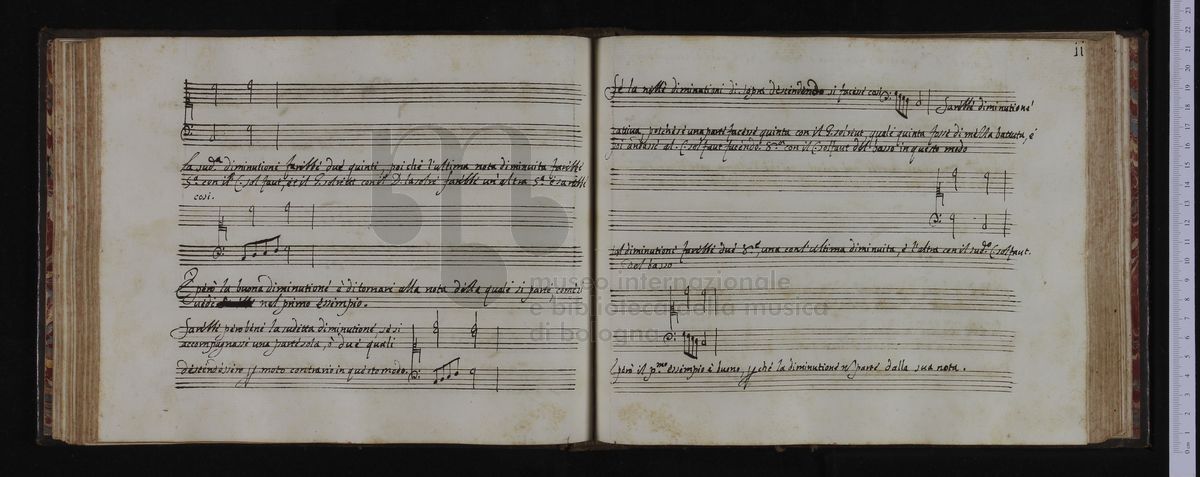 La sud.ᵃ diminutione sarebbe due quinte, poi che l'ultima nota diminuita sarebbe
5.ᵃ con il C sol faut, et il G sol re ut con il D la sol re sarebbe un'altra 5.ᵃ e sarebbe
cosi.
E però la buona diminutione è di tornare alla nota dalla quale si parte come si
nel primo essempio.
Sarebbe però bene la sudetta diminutione se si
accompagnasse una parte sola, ò due quali
descendessero p moto contrario in questo modo.
ii
Se la notte diminutioni di sopra descendendo si facesse cosi
Sarebbe diminutione
cattiva, perche se una parte facesse quinta con il G sol re ut quale quinta fosse di mezza battuta, e
poi andasse al C sol faut farebbe 8.ᵛᵃ con il C sol faut del basso in questo modo
tal diminutione sarebbe due 8.ᵛᵉ, una con l'ultima diminuita, e l'altra con il sud.ᵒ C sol faut.
del basso
però il p.ᵐᵒ essempio è buono, p che la diminutione si parte dalla sua nota.
museo internazionale
e biblioteca della musica
di bologna